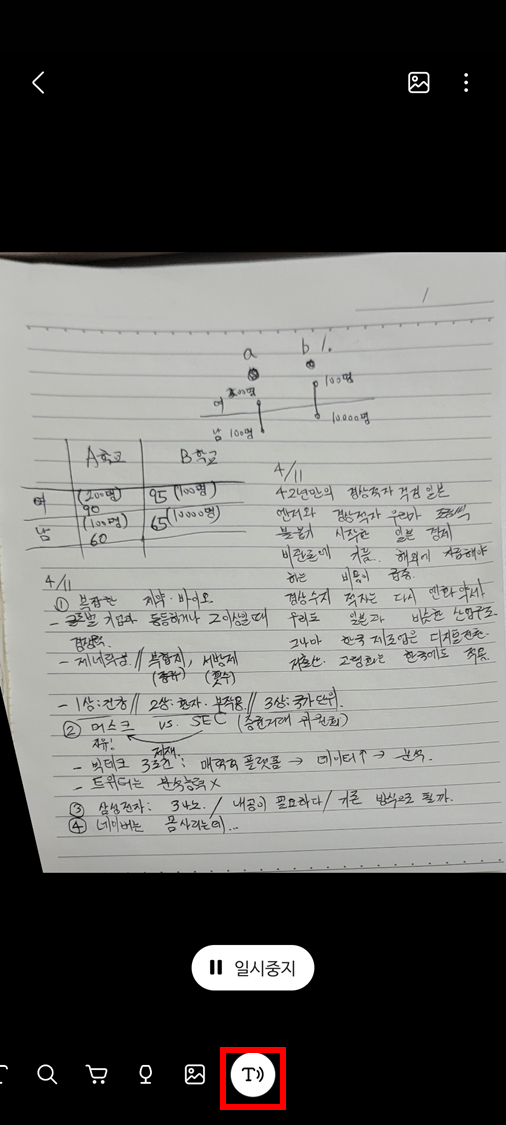 a b %.
여 200명 100명
남 100명 10000명
A학교 B학교
여 (200명) 95 (100명)
90
남 (100명) 65 (10000명)
60
4/11
42년만의 경상적자 걱정 일본
엔저와 경상적자 우려가
불붙기 시작한 일본 경제
비관론에 기름. 해외에 지급해야
하는 비용이 급증.
경상수지 적자는 다시 엔화 약세
우리도 일본과 비슷한 산업구조.
그나마 한국 제조업은 디지털전환.
저출산. 고령화는 한국에도 적용
4/11
① 복잡한 제약·바이오
- 글로벌 기업과 동등하거나 그 이상일 때
경쟁력.
- 제네릭성 // 복합제, 서방제
(종류) (횟수)
- 1상: 건강 // 2상: 환자. 부작용 // 3상: 국가단위.
② 머스크 vs. SEC (증권거래 위원회)
자유! 제재.
- 빅테크 3조건: 매력적 플랫폼 → 데이터↑ → 분석.
- 트위터는 분석능력 X
③ 삼성전자: 3나노. / 내공이 필요하다 / 기존 방식으로 될까.
④ 네이버는 몸사리는데...
일시중지
T